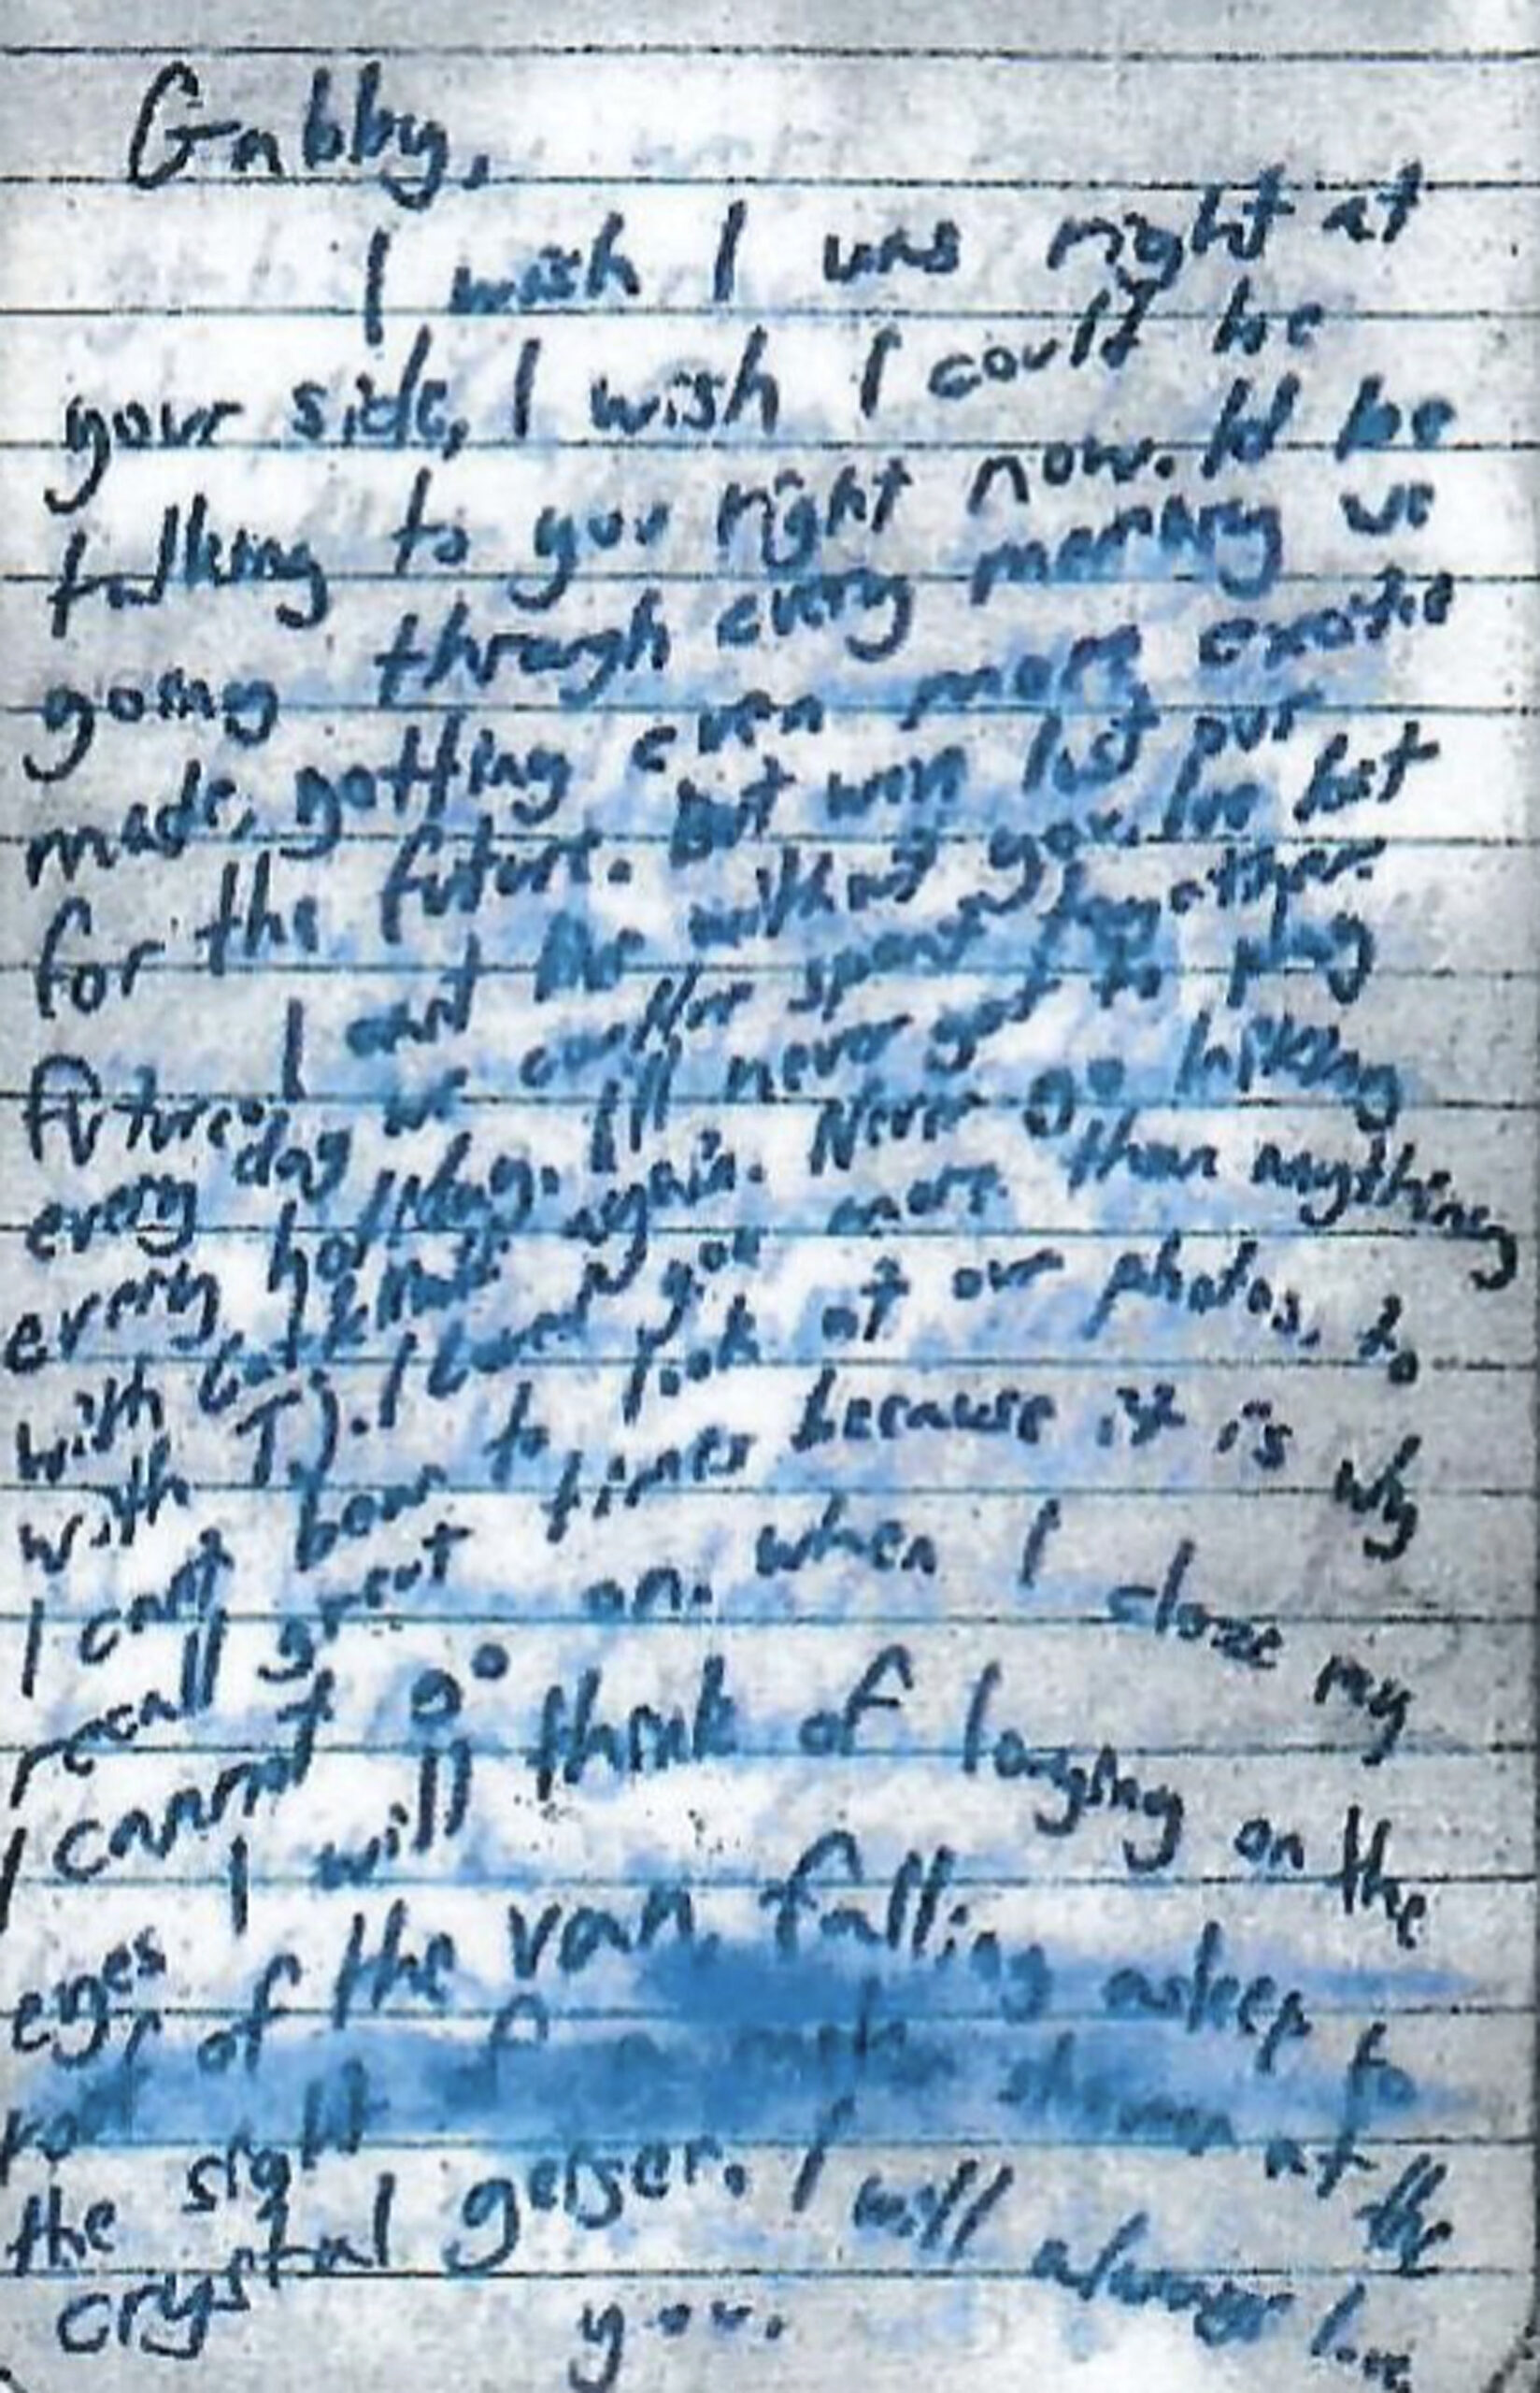 Gabby,
I wish I was right at
your side, I wish I could be
talking to you right now. Id be
going through every memory we
made, getting even more excited
for the future. But we lost our
future. I cant live without you. Ive lost
every day we could've spent together.
every holiday. I'll never get to play
with again. Never go hiking
with TJ. I loved you more than anything
I cant bear to look at our photos, to
recall great times because it is why
I cannot go on. when I close my
eyes I will think of laughing on the
roof of the van, falling asleep to
the sight of at the
crystal geiser. I will always love
you.